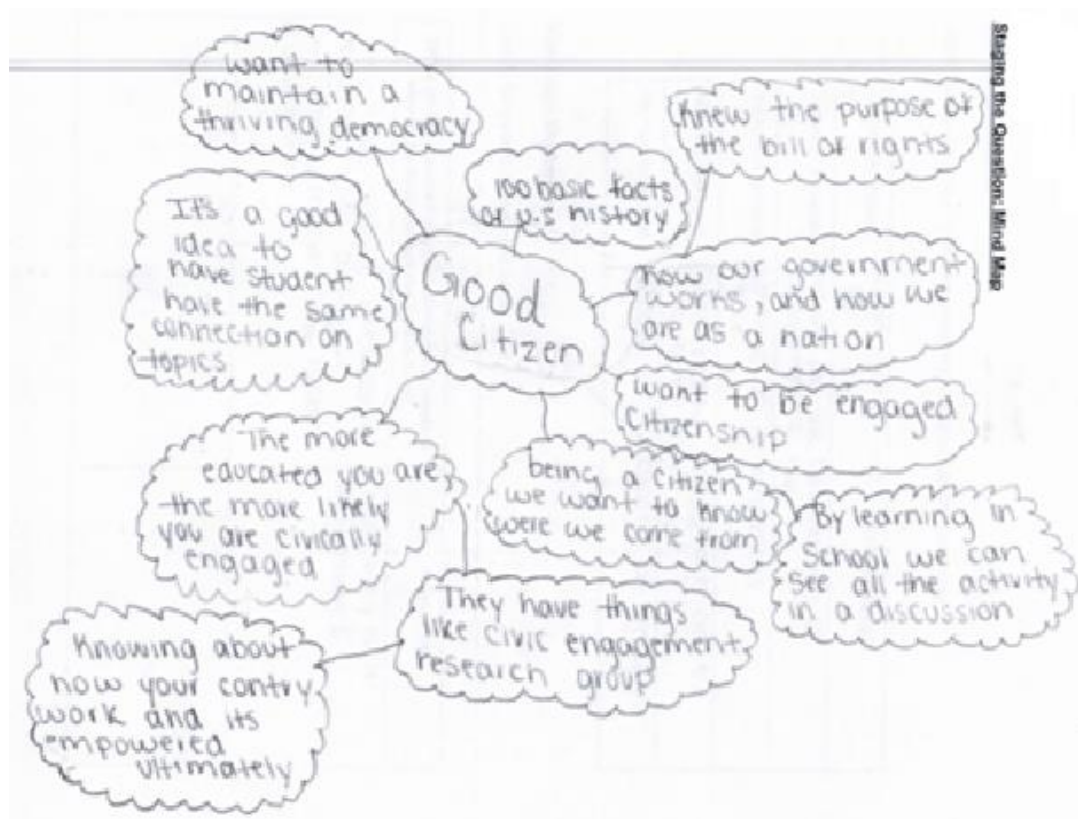 Staging the Question: Mind Map
want to
maintain a
thriving democracy
Knew the purpose of
the bill of rights
100 basic facts
of U.S history
It's a good
idea to
have student
have the same
connection on
topics
Good
Citizen
how our government
works, and how we
are as a nation
want to be engaged
Citizenship
The more
educated you are,
the more likely
you are civically
engaged
being a citizen
we want to know
were we come from
By learning in
School we can
see all the activity
in a discussion
They have things
like civic engagement
research group
Knowing about
how your contry
work and its
empowered
ultimately